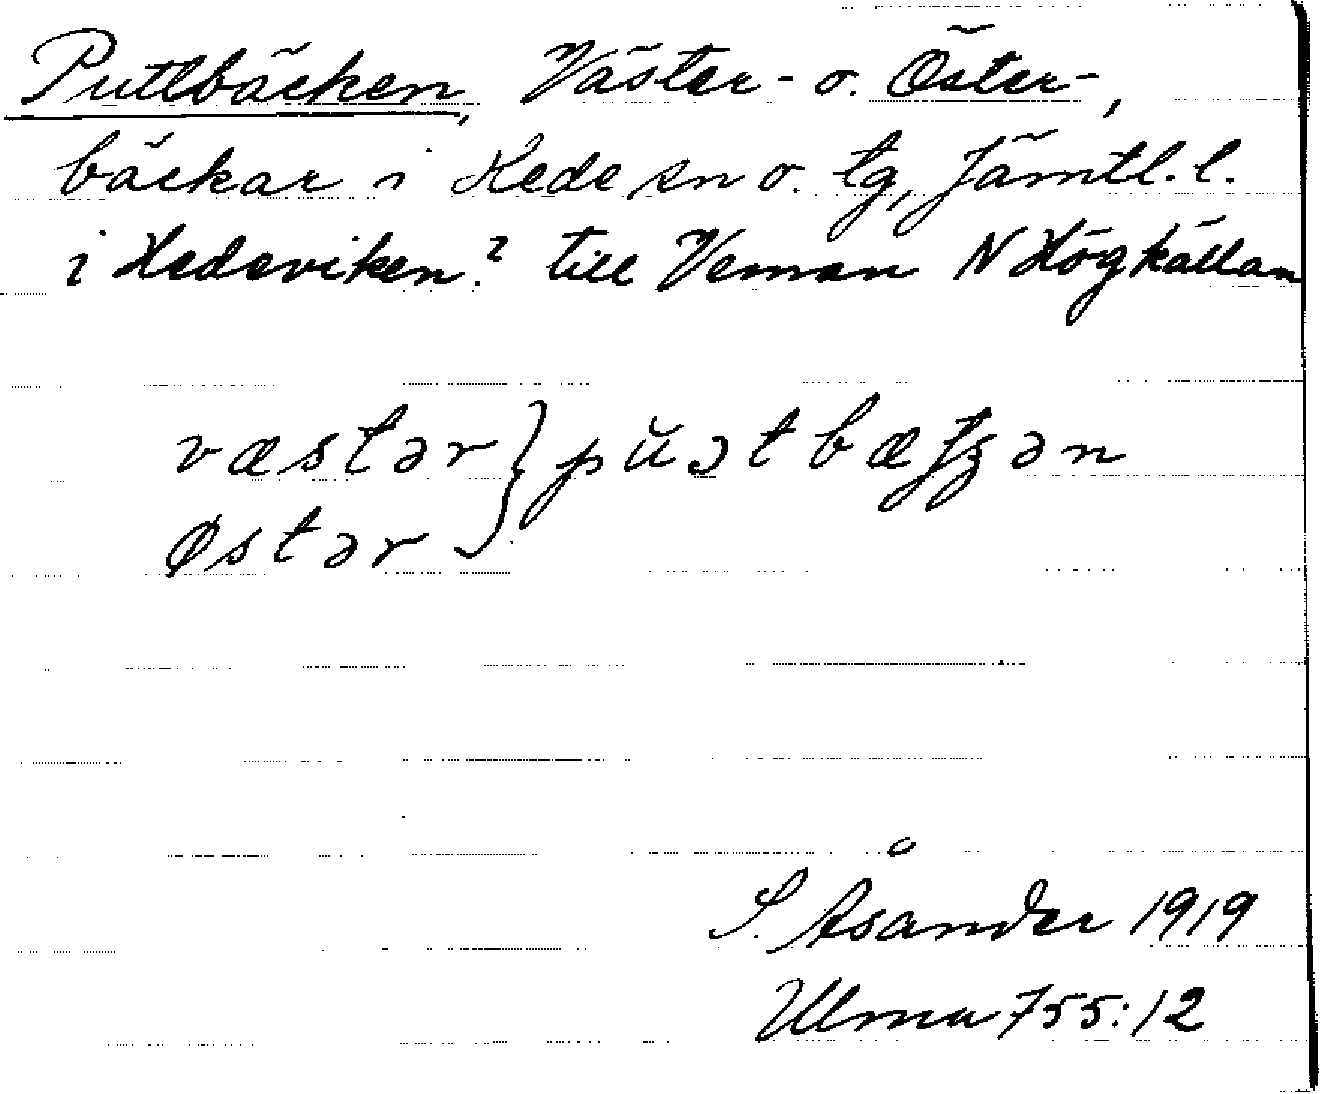 Puttbäcken, Väster- o. Öster-,
bäckar i Hede sn o. tg, Jämtl. l.
i Hedeviken? till Veman N Högkällan
væstər } pŭɔtbæʈʂən
østər
S. Åsander 1919
Ulma 755:12